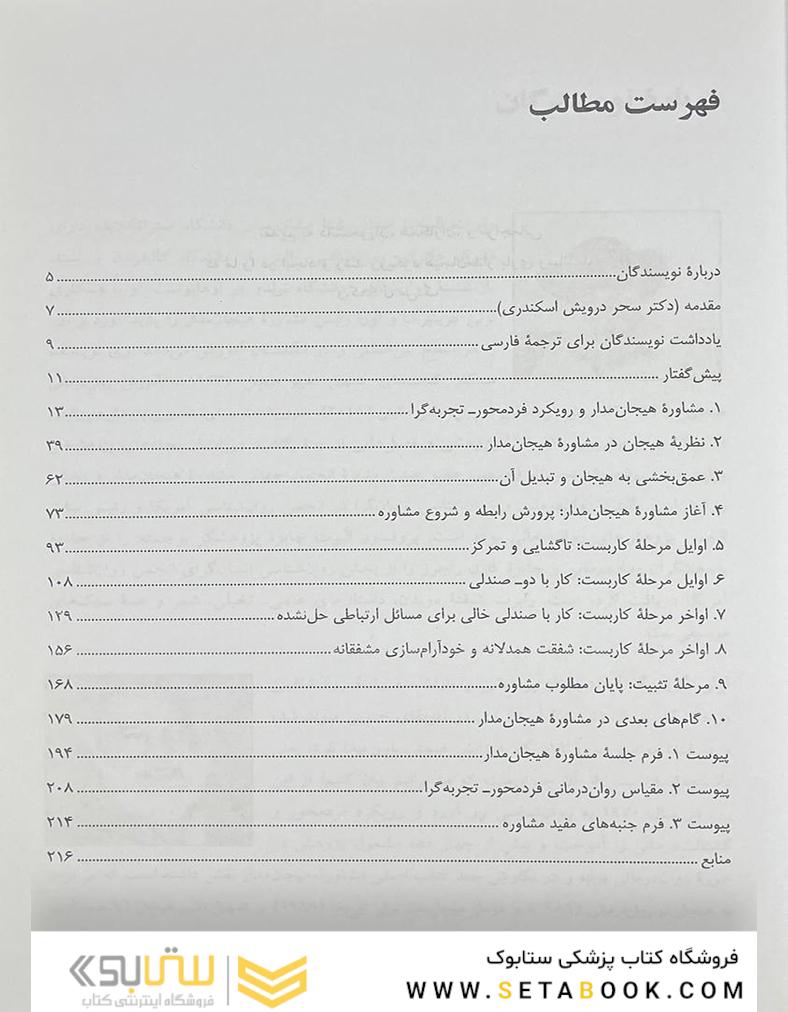 فهرست مطالب
دربارهٔ نویسندگان ........ ۵
مقدمه (دکتر سحر درویش اسکندری) ........ ۷
یادداشت نویسندگان برای ترجمهٔ فارسی ........ ۹
پیش‌گفتار ........ ۱۱
۱. مشاورهٔ هیجان‌مدار و رویکرد فردمحورـ تجربه‌گرا ........ ۱۳
۲. نظریهٔ هیجان در مشاورهٔ هیجان‌مدار ........ ۳۹
۳. عمق‌بخشی به هیجان و تبدیل آن ........ ۶۲
۴. آغاز مشاورهٔ هیجان‌مدار: پرورش رابطه و شروع مشاوره ........ ۷۳
۵. اوایل مرحلهٔ کاربست: تاگشایی و تمرکز ........ ۹۳
۶. اوایل مرحلهٔ کاربست: کار با دوـ صندلی ........ ۱۰۸
۷. اواخر مرحلهٔ کاربست: کار با صندلی خالی برای مسائل ارتباطی حل‌نشده ........ ۱۲۹
۸. اواخر مرحلهٔ کاربست: شفقت همدلانه و خودآرام‌سازی مشفقانه ........ ۱۵۶
۹. مرحلهٔ تثبیت: پایان مطلوب مشاوره ........ ۱۶۸
۱۰. گام‌های بعدی در مشاورهٔ هیجان‌مدار ........ ۱۷۹
پیوست ۱. فرم جلسهٔ مشاورهٔ هیجان‌مدار ........ ۱۹۴
پیوست ۲. مقیاس روان‌درمانی فردمحورـ تجربه‌گرا ........ ۲۰۸
پیوست ۳. فرم جنبه‌های مفید مشاوره ........ ۲۱۴
منابع ........ ۲۱۶
فروشگاه کتاب پزشکی ستابوک
WWW.SETABOOK.COM
ستابوک
فروشگاه اینترنتی کتاب